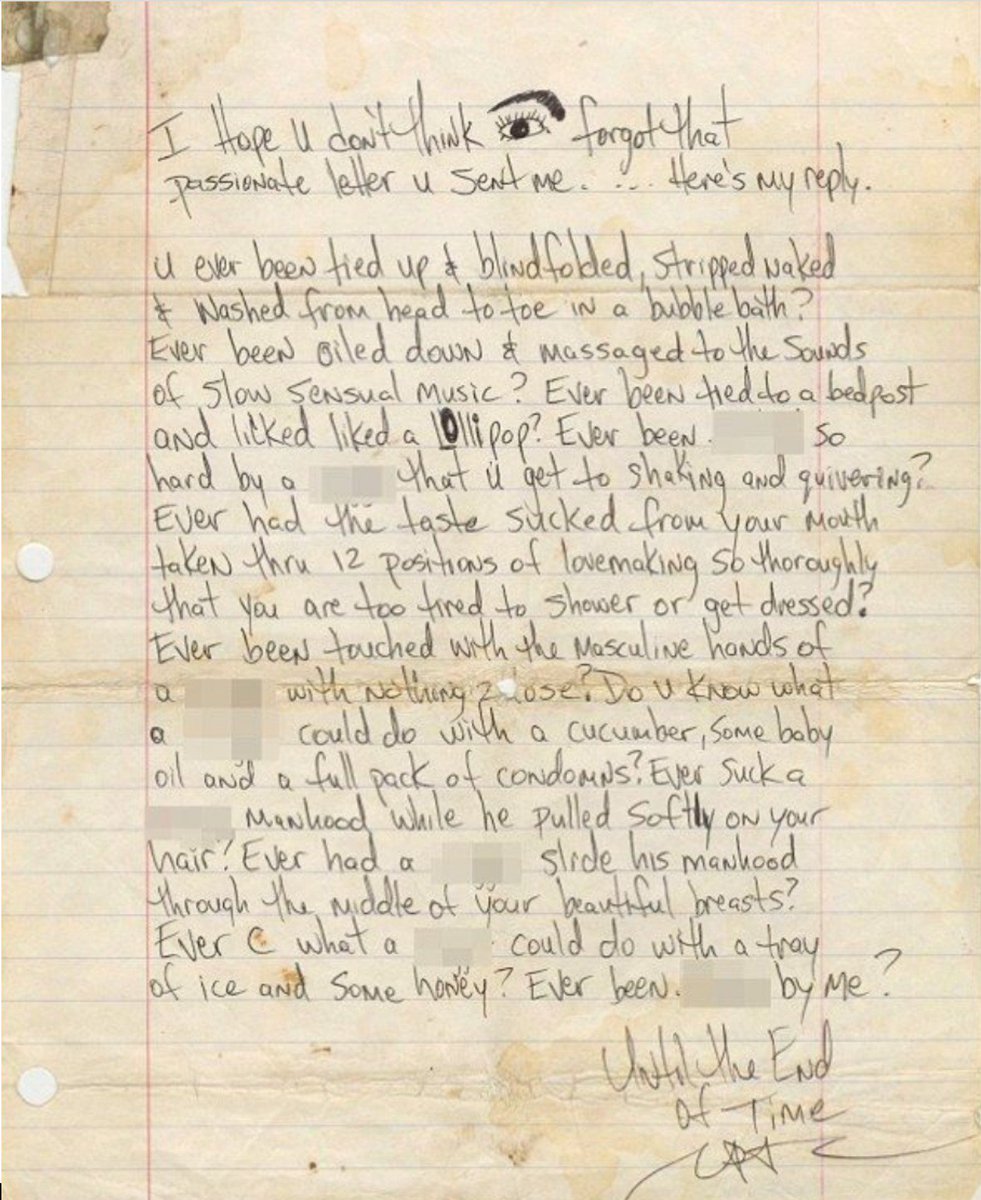 I Hope u don't think forgot that
passionate letter u sent me. ... Here's my reply.
u ever been tied up & blindfolded, stripped naked
& washed from head to toe in a bubble bath?
Ever been oiled down & massaged to the sounds
of slow sensual music? Ever been tied to a bedpost
and licked liked a lollipop? Ever been. so
hard by a that u get to shaking and quivering?
Ever had the taste sucked from your mouth
taken thru 12 positions of lovemaking so thoroughly
that you are too tired to shower or get dressed?
Ever been touched with the masculine hands of
a with nothing 2 lose? Do u know what
a could do with a cucumber, some baby
oil and a full pack of condomns? Ever suck a
manhood while he pulled softly on your
hair? Ever had a slide his manhood
through the middle of your beautiful breasts?
Ever C what a could do with a tray
of ice and some honey? Ever been. by me?
Until the End
of Time